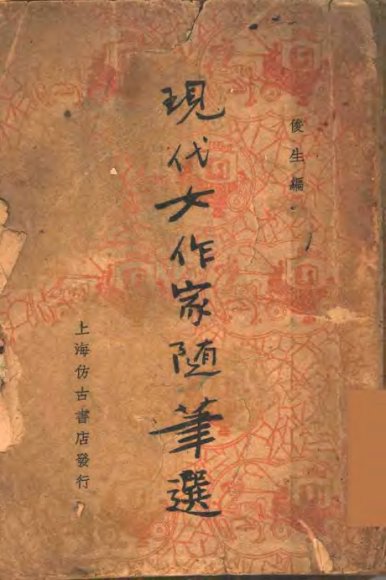 俊生編
現代女作家随筆選
上海仿古書店發行